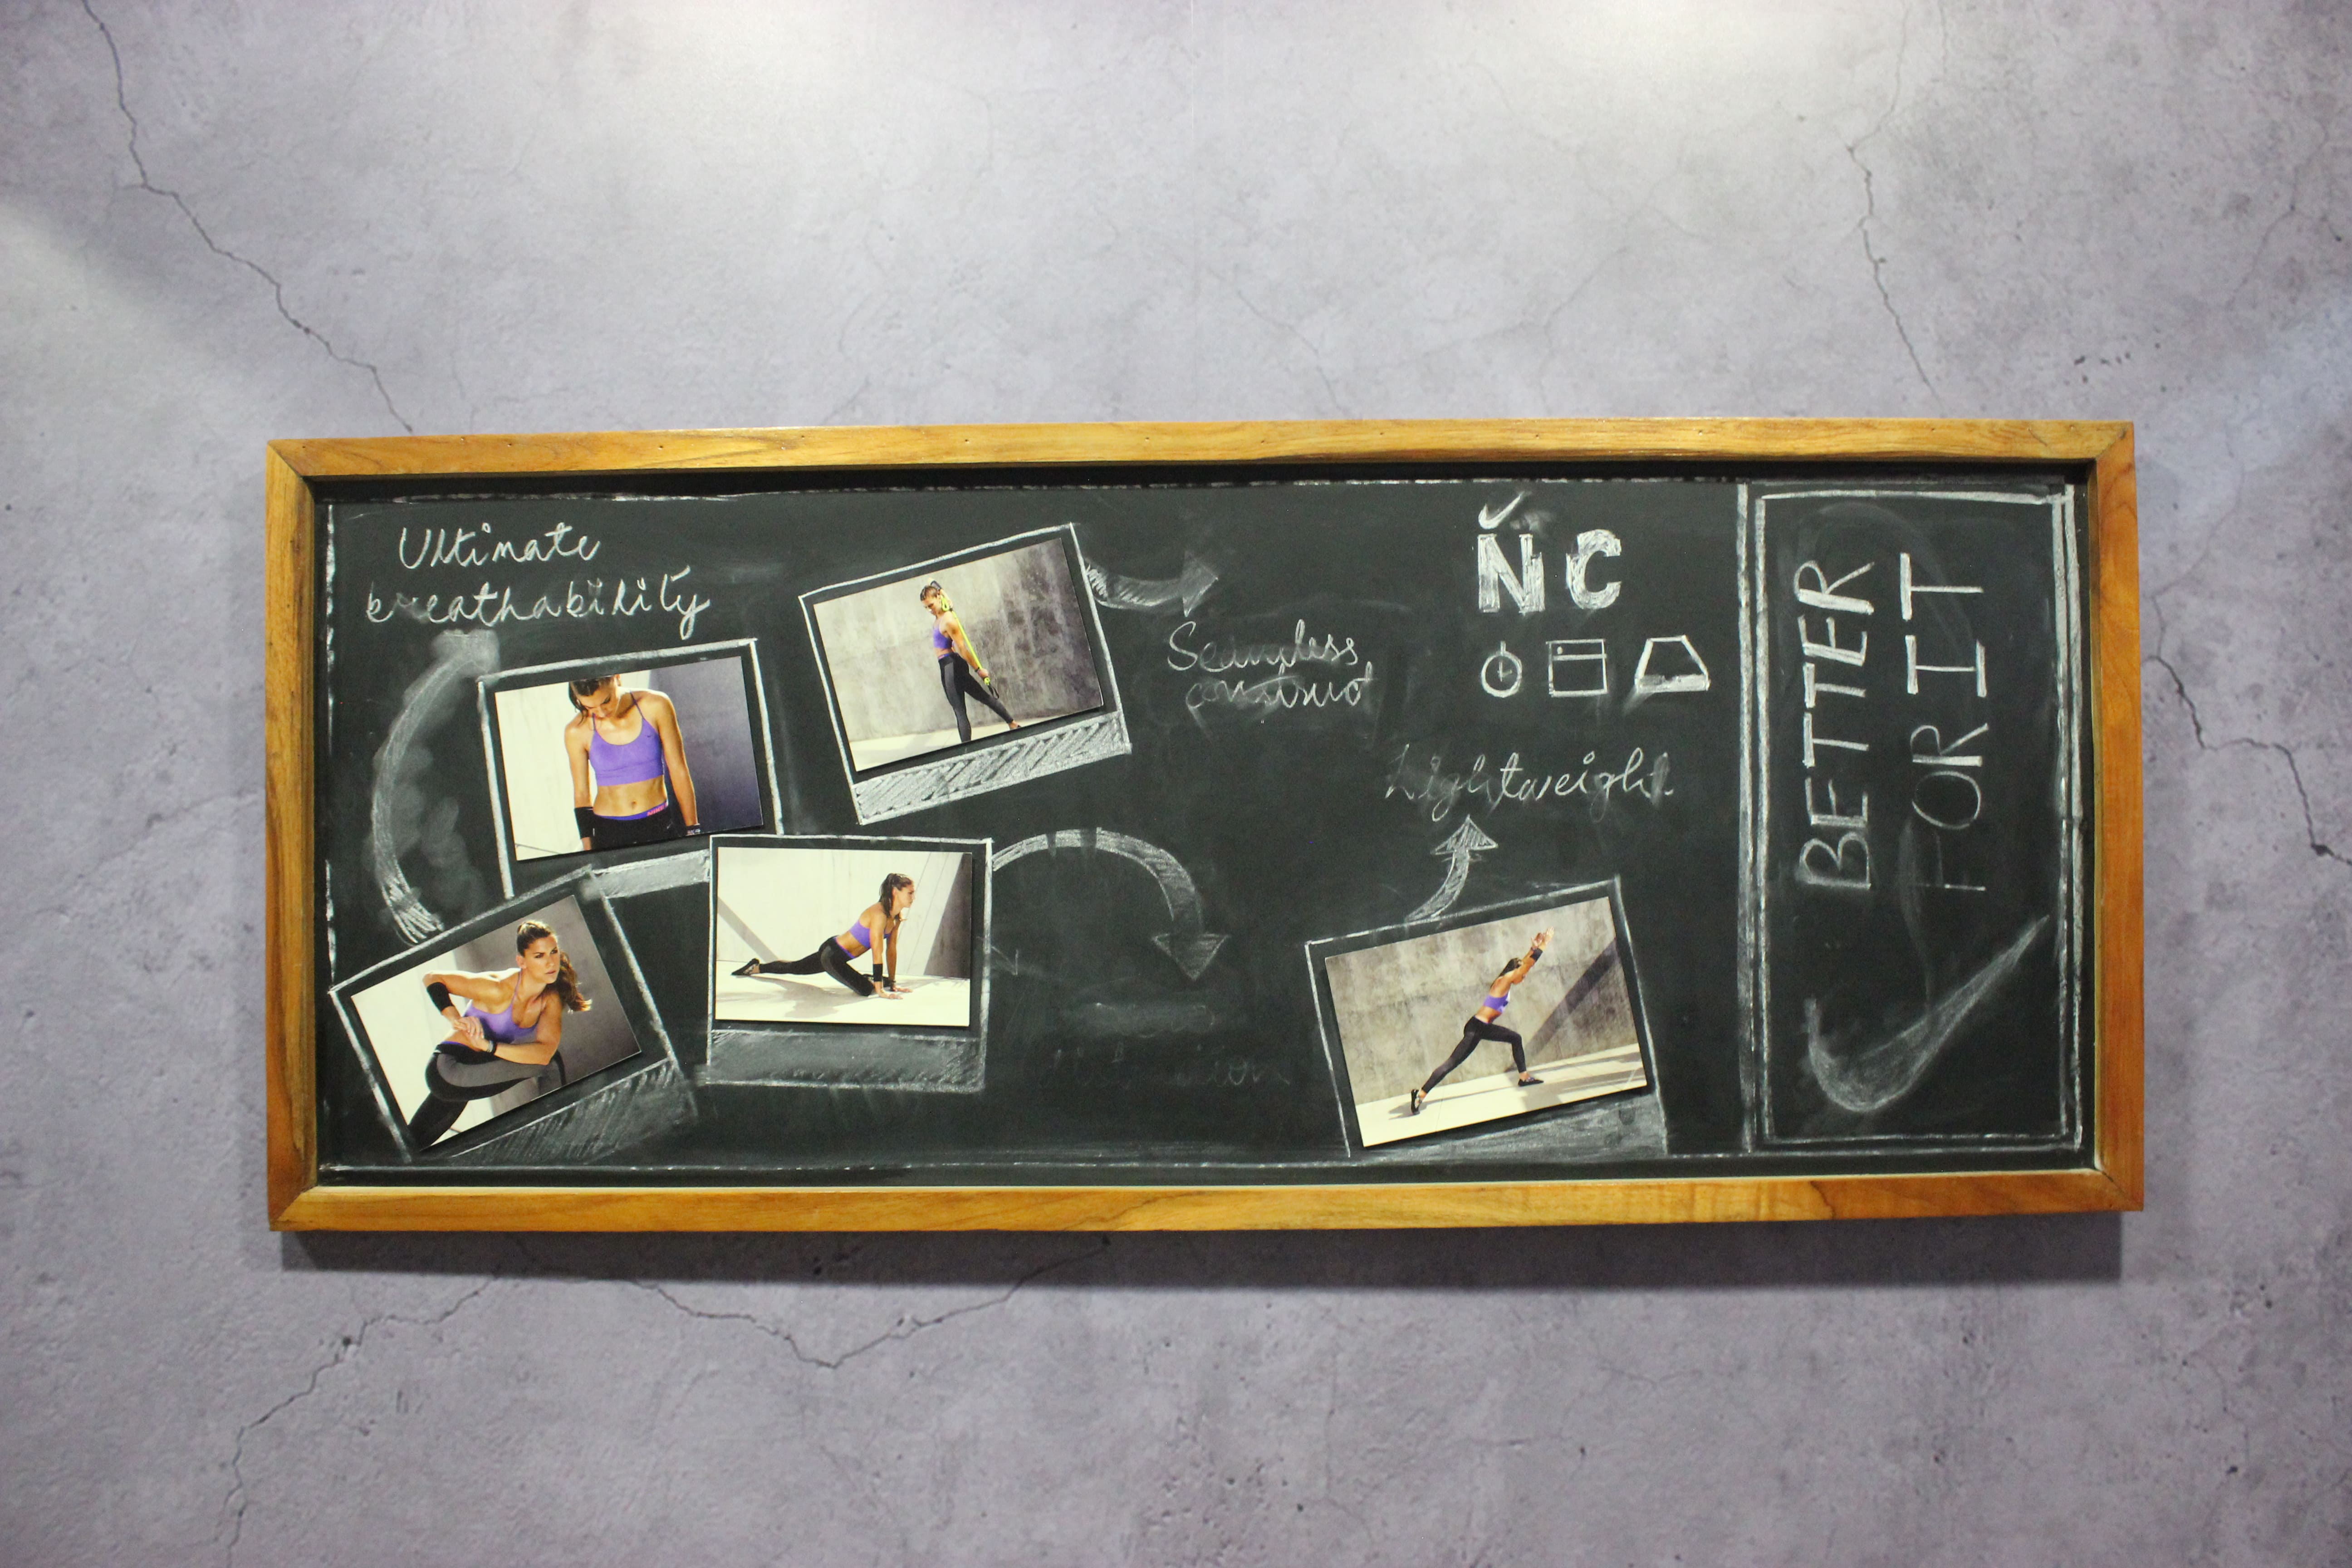 Ultimate
breathability
Seamless
construct
N C
Lightweight
BETTER
FOR IT